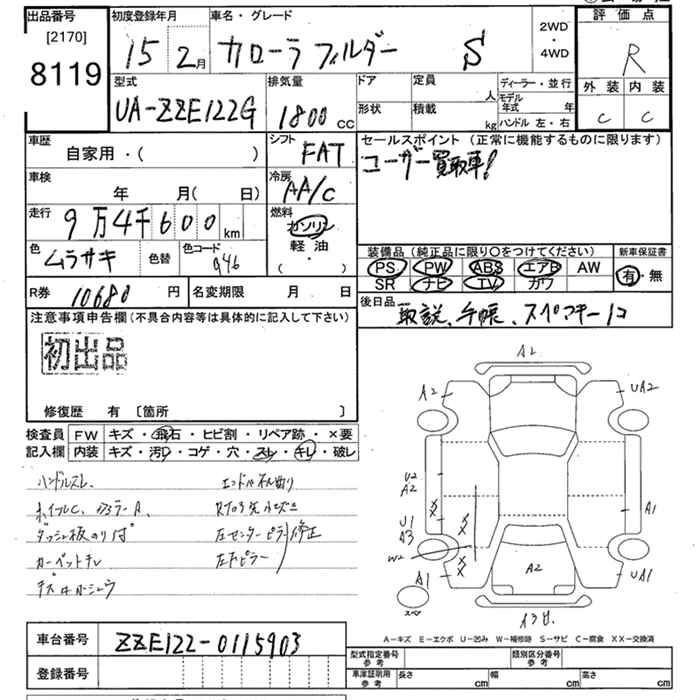 出品番号 初度登録年月 車名・グレード 2WD・4WD 評価点
[2170] 8119 15 2月 カローラフィルダー S R
型式 排気量 ドア 定員 人 ディーラー・並行 外装 内装
UA-ZZE122G 1800 CC 形状 積載 kg モデル年式 年 ハンドル 左・右 C C
車歴 シフト セールスポイント (正常に機能するものに限ります)
自家用・( ) FAT ユーザー買取車!
車検 年 月( 日) 冷房 AA/C
走行 9万4千600km 燃料 ガソリン
軽油
( ・ )
色 ムラサキ 色替 色コード 946
装備品 (純正品に限り○をつけてください) 新車保証書
PS PW ABS エアB AW 有・無
SR ナビ TV カワ
R券 10680円 名変期限 月 日 後日品 取説、手帳、スペアキー1コ
注意事項申告欄(不具合内容等は具体的に記入して下さい)
初出品
修復歴 有 〔箇所 〕
検査員 FW キズ・飛石・ヒビ割・リペア跡・×要
記入欄 内装 キズ・汚れ・コゲ・穴・スレ・キレ・破レ
ハンドルスレ
ホイルC、
ダッシュ板のり付
カーペットキレ
左センターピラー
修正
A2
A2 UA2
U2
A2
XX
XX
U1
A3
A1
W2
XX
A1 A2 UA1
スペア
A-キズ E-エクボ U-凹み W-補修跡 S-サビ C-腐食 XX-交換済
車台番号 ZZE122-0115903
登録番号
型式指定番号 参考 類別区分番号 参考
車庫証明用 参考 長さ cm 幅 cm 高さ cm